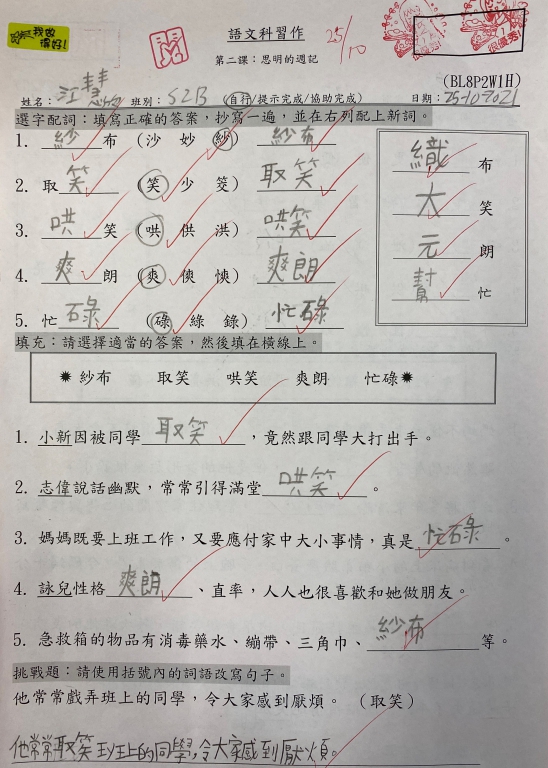 我做得好!
閱
語文科習作
25/10
很優秀!
第二課：思明的週記
(BL8P2W1H)
姓名：江 班別：S2B (自行/提示完成/協助完成) 日期：25-10-2021
選字配詞：填寫正確的答案，抄寫一遍，並在右列配上新詞。
1. 紗布 (沙 妙 紗) 紗布
織布
2. 取笑 (笑 少 筊) 取笑
大笑
3. 哄笑 (哄 供 洪) 哄笑
元朗
4. 爽朗 (爽 傸 慡) 爽朗
幫忙
5. 忙碌 (碌 綠 錄) 忙碌
填充：請選擇適當的答案，然後填在橫線上。
✹ 紗布 取笑 哄笑 爽朗 忙碌✹
1. 小新因被同學取笑，竟然跟同學大打出手。
2. 志偉說話幽默，常常引得滿堂哄笑。
3. 媽媽既要上班工作，又要應付家中大小事情，真是忙碌。
4. 詠兒性格爽朗、直率，人人也很喜歡和她做朋友。
5. 急救箱的物品有消毒藥水、繃帶、三角巾、紗布等。
挑戰題：請使用括號內的詞語改寫句子。
他常常戲弄班上的同學，令大家感到厭煩。（取笑）
他常常取笑班上的同學，令大家感到厭煩。